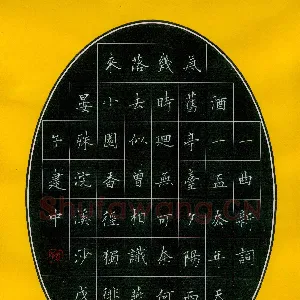 一曲新詞
酒一盃去年天
氣舊亭臺夕陽西
幾時迴無可奈何
落去似曾相識燕
來小園香徑獨徘
晏殊浣溪沙戊
午建中